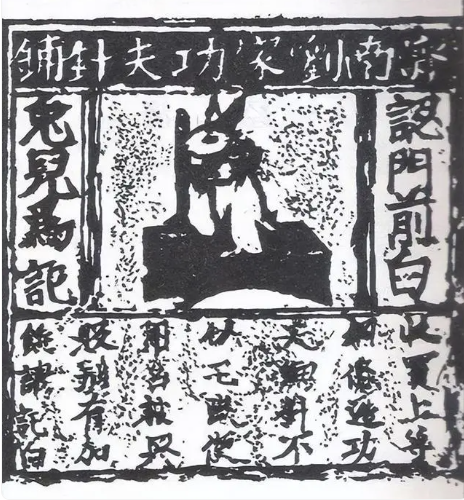 濟南劉家功夫針鋪
認門前白
兔兒為記
收買上等
鋼條造功
夫細針不
宅院使
用
販別有加
饒記白